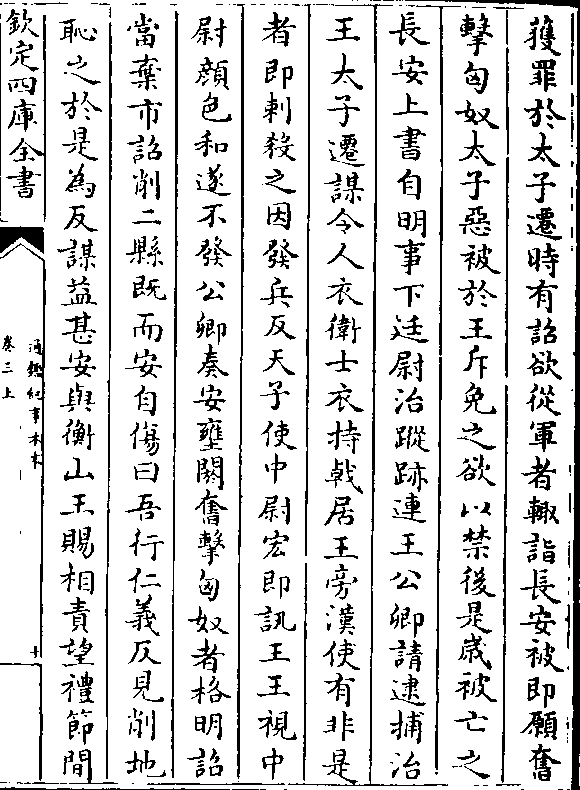 獲罪於太子遷時有詔欲從軍者輙詣長安被即願奮
擊匈奴太子惡被於王斥免之欲以禁後是歳被亡之
長安上書自明事下廷尉治蹤跡連王公卿請逮捕治
王太子遷謀令人衣衛士衣持戟居王旁漢使有非是
者即刺殺之因發兵反天子使中尉宏即訊王王視中
尉顔色和遂不發公卿奏安壅閼奮擊匈奴者格明詔
當棄市詔削二縣既而安自傷曰吾行仁義反見削地
恥之於是為反謀益甚安與衡山王賜相責望禮節間
欽定四庫全書
通鑑紀事本末
卷三上
十